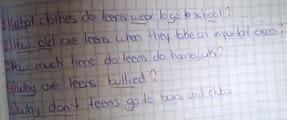 What clothes do teens wear to go to school?
How old are teens when they take an important exam?
How much time do teens do homework?
Why are teens bullied?
Why don't teens go to bars and clubs